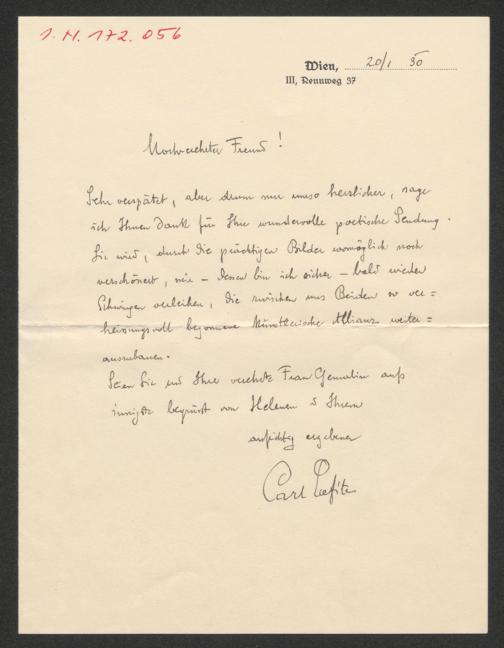 1.H.172.056
Wien, 20/1 30
III, Rennweg 37
Hochverehrter Freund!
Sehr verspätet, aber drum nur umso herzlicher, sage
ich Ihnen Dank für Ihre wundervolle poetische Sendung.
Sie wird, durch die prächtigen Bilder womöglich noch
verschönert, mir – dessen bin ich sicher – bald wieder
Schwingen verleihen, die zwischen uns Beiden so ver=
heissungsvoll begonnene künstlerische Allianz weiter=
auszubauen.
Seien Sie und Ihre verehrte Frau Gemalin aufs
innigste begrüsst von Helenen & Ihrem
aufrichtig ergebenen
Carl Lafite